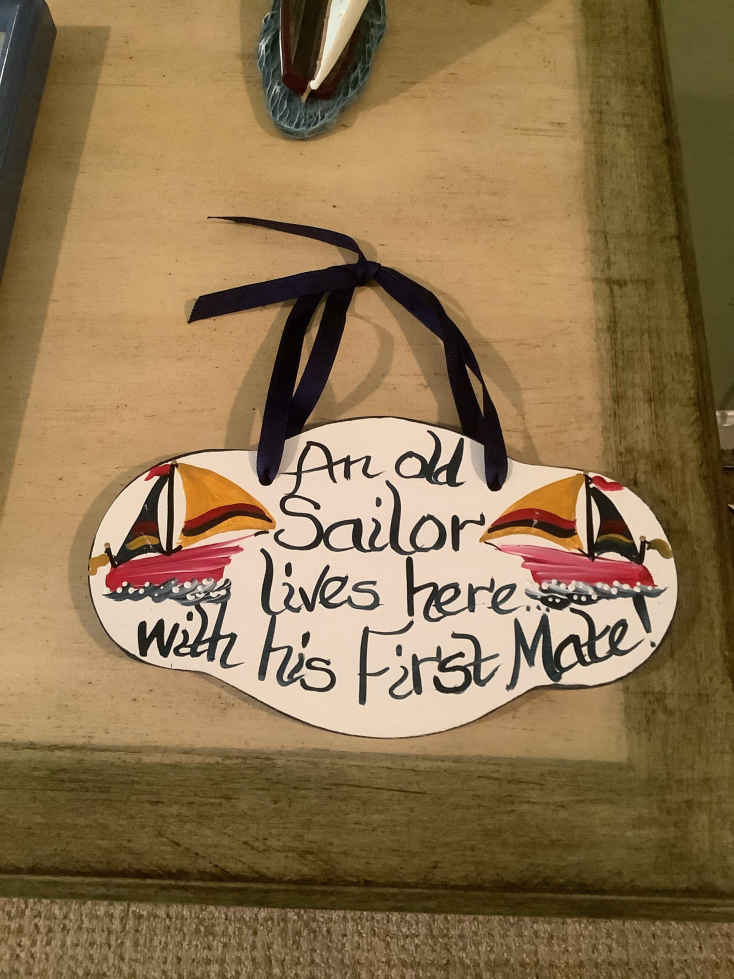 An old
Sailor
lives here...
with his First Mate!